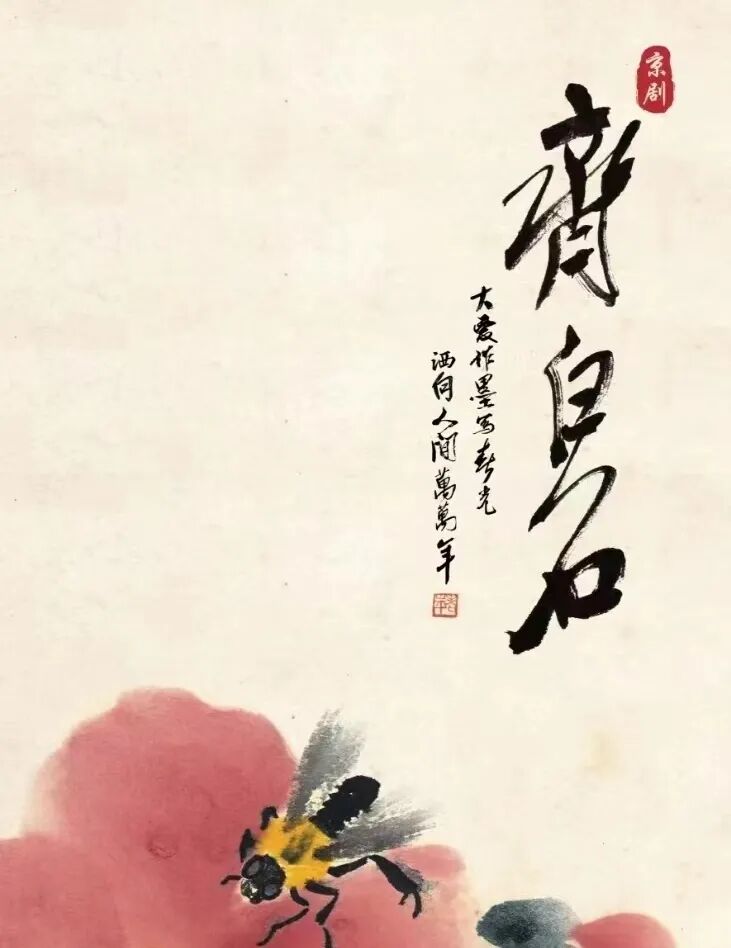 京剧
齊白石
大爱作墨写春光
洒向人间萬萬年